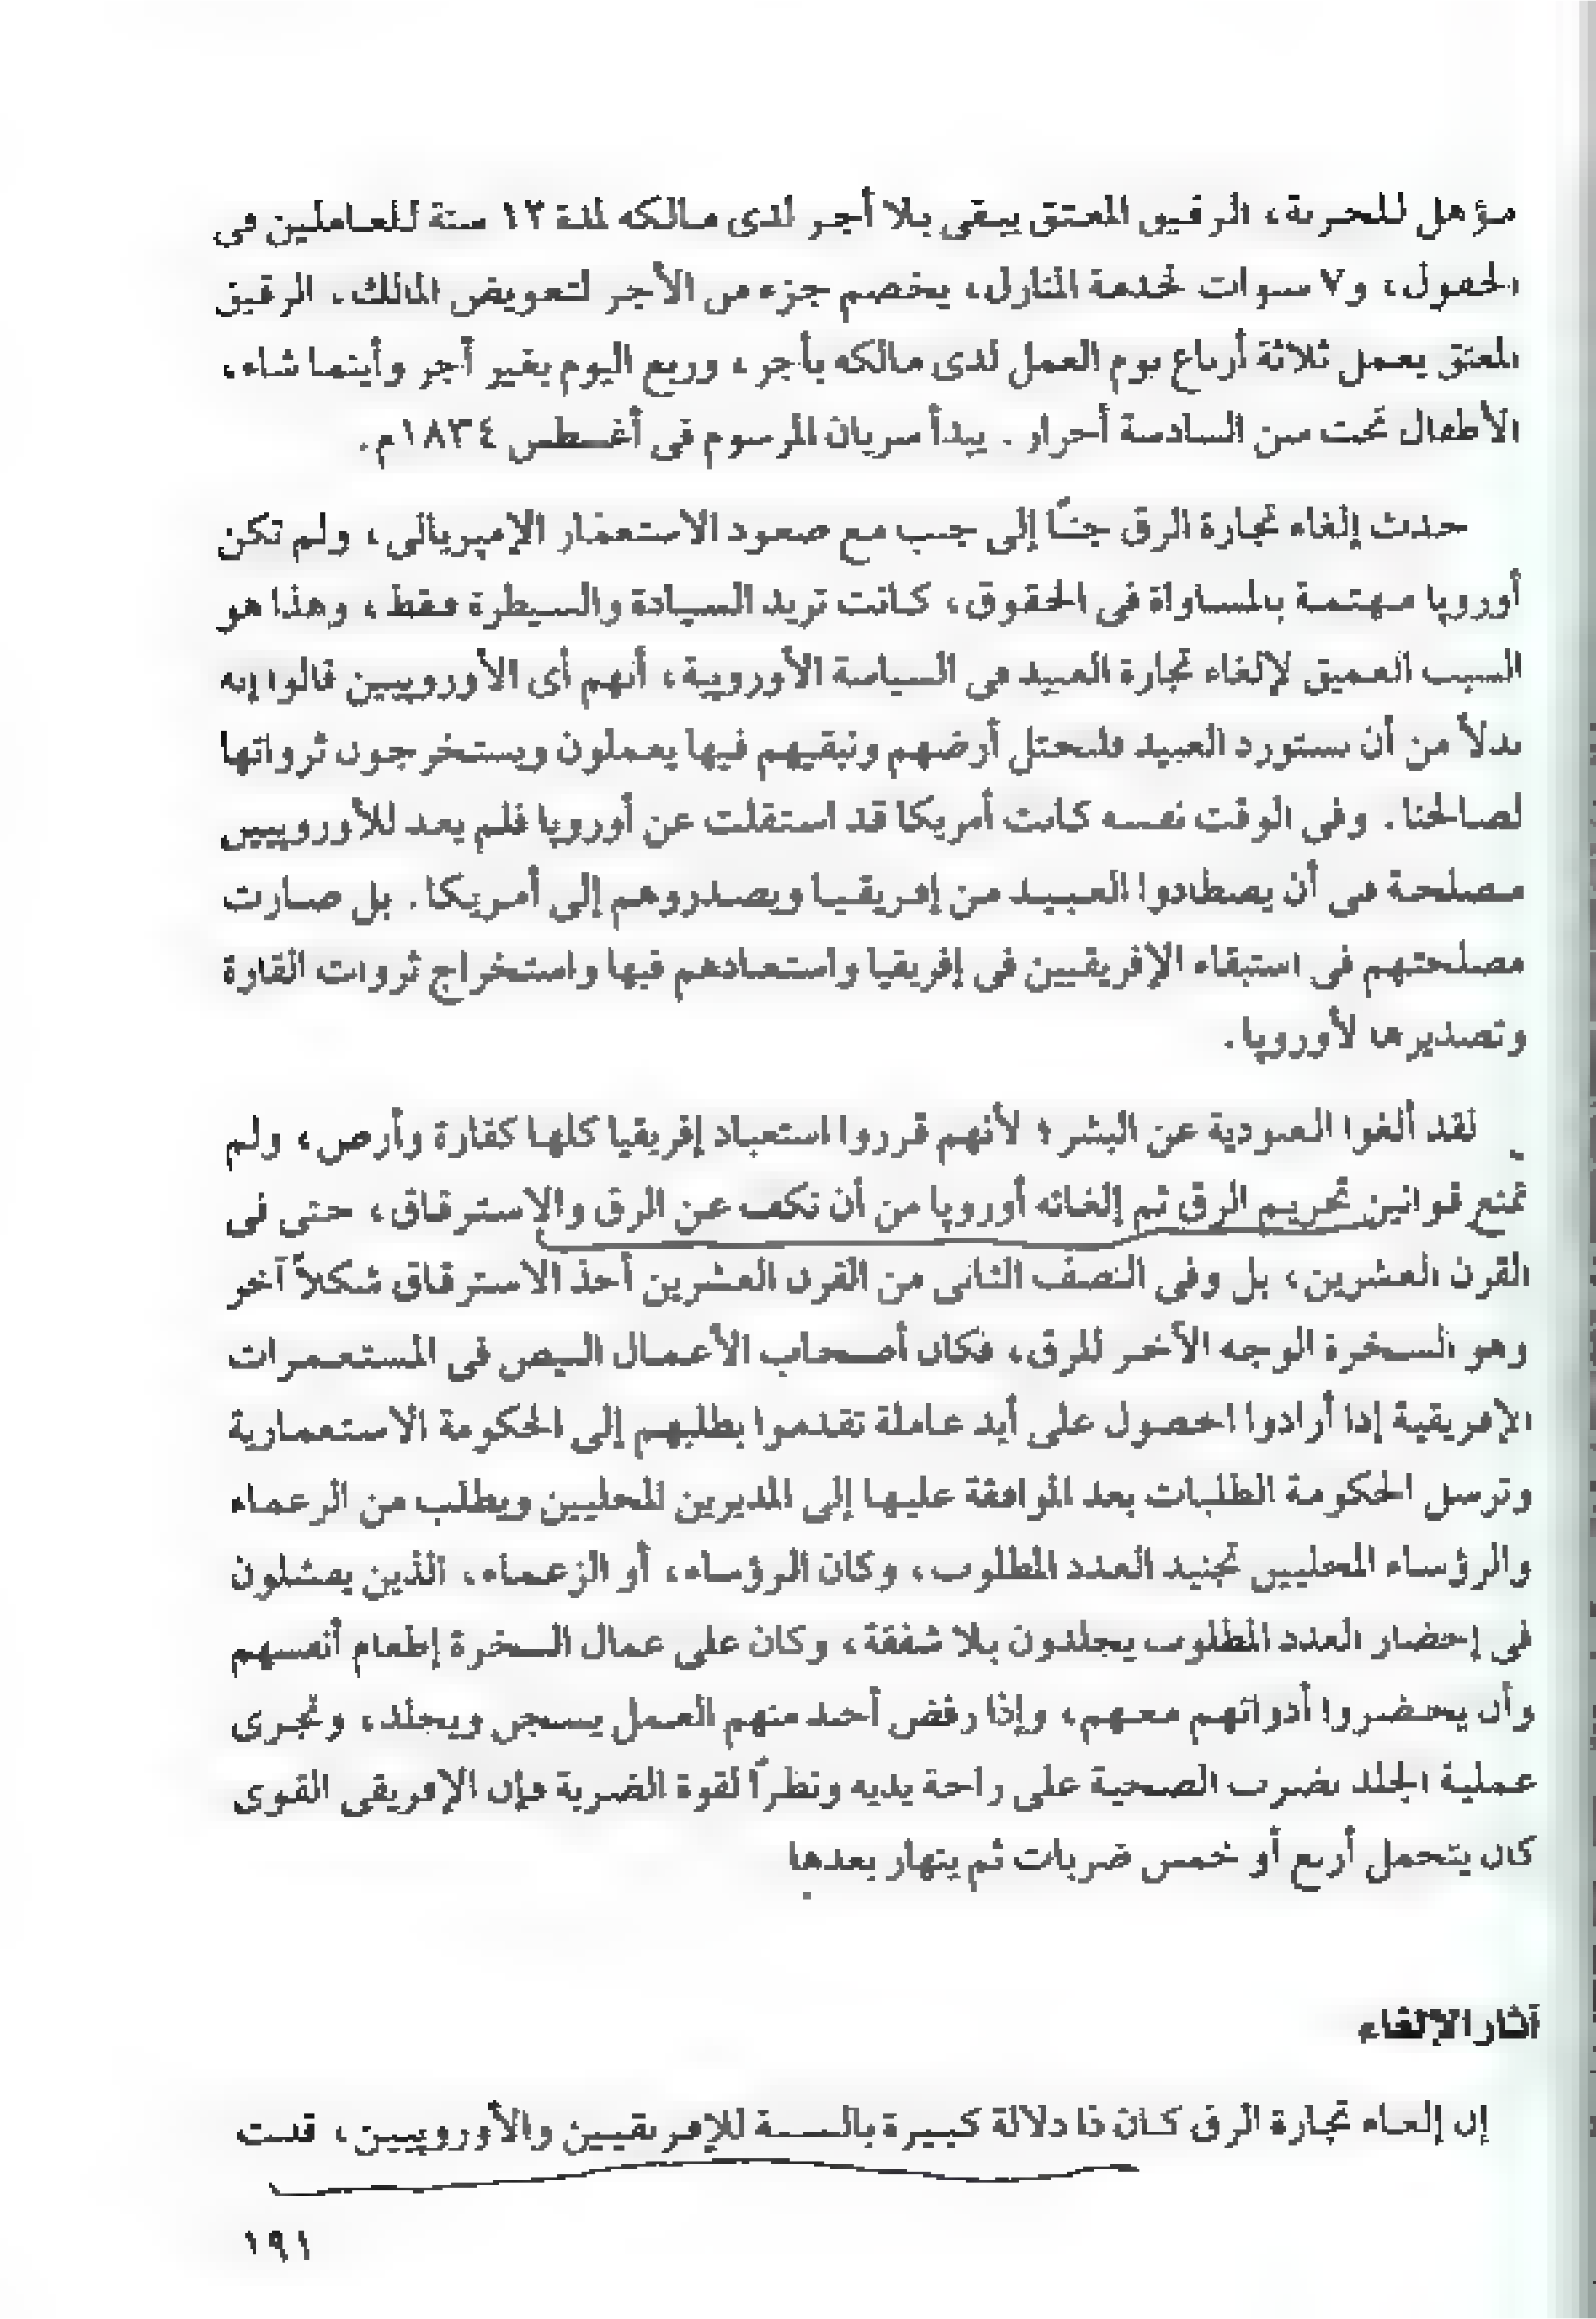 مؤهل للحرية، الرقيق المعتق يبقى بلا أجر لدى مالكه لمدة ١٢ سنة للعاملين فى
الحقول، و٧ سنوات لخدمة المنازل، يخصم جزء من الأجر لتعويض المالك. الرقيق
المعتق يعمل ثلاثة أرباع يوم العمل لدى مالكه بأجر، وربع اليوم بغير أجر وأينما شاء،
الأطفال تحت سن السادسة أحرار. يبدأ سريان المرسوم فى أغسطس ١٨٣٤م.
حدث إلغاء تجارة الرق جنبًا إلى جنب مع صعود الاستعمار الإمبريالى، ولم تكن
أوروبا مهتمة بالمساواة فى الحقوق، كانت تريد السيادة والسيطرة فقط، وهذا هو
السبب العميق لإلغاء تجارة العبيد فى السياسة الأوروبية، أنهم أى الأوروبيين قالوا إنه
بدلاً من أن نستورد العبيد فلنحتل أرضهم ونبقيهم فيها يعملون ويستخرجون ثرواتها
لصالحنا. وفى الوقت نفسه كانت أمريكا قد استقلت عن أوروبا فلم يعد للأوروبيين
مصلحة فى أن يصطادوا العبيد من إفريقيا ويصدروهم إلى أمريكا. بل صارت
مصلحتهم فى استبقاء الإفريقيين فى إفريقيا واستعبادهم فيها واستخراج ثروات القارة
وتصديرها لأوروبا.
لقد ألغوا العبودية عن البشر؛ لأنهم قرروا استعباد إفريقيا كلها كقارة وأرض، ولم
تمنع قوانين تحريم الرق ثم إلغائه أوروبا من أن تكف عن الرق والاسترقاق، حتى فى
القرن العشرين، بل وفى النصف الثانى من القرن العشرين أخذ الاسترقاق شكلاً آخر
وهو السخرة الوجه الآخر للرق، فكان أصحاب الأعمال البيض فى المستعمرات
الإفريقية إذا أرادوا الحصول على أيد عاملة تقدموا بطلبهم إلى الحكومة الاستعمارية
وترسل الحكومة الطلبات بعد الموافقة عليها إلى المديرين المحليين ويطلب من الزعماء
والرؤساء المحليين تجنيد العدد المطلوب، وكان الرؤساء، أو الزعماء، الذين يفشلون
فى إحضار العدد المطلوب يجلدون بلا شفقة، وكان على عمال السخرة إطعام أنفسهم
وأن يحضروا أدواتهم معهم، وإذا رفض أحد منهم العمل يسجن ويجلد، وتجرى
عملية الجلد بضرب الضحية على راحة يديه ونظرًا لقوة الضربة فإن الإفريقى القوى
كان يتحمل أربع أو خمس ضربات ثم ينهار بعدها
آثار الإلغاء
إن إلغاء تجارة الرق كان ذا دلالة كبيرة بالنسبة للإفريقيين والأوروبيين، قلت
١٩١